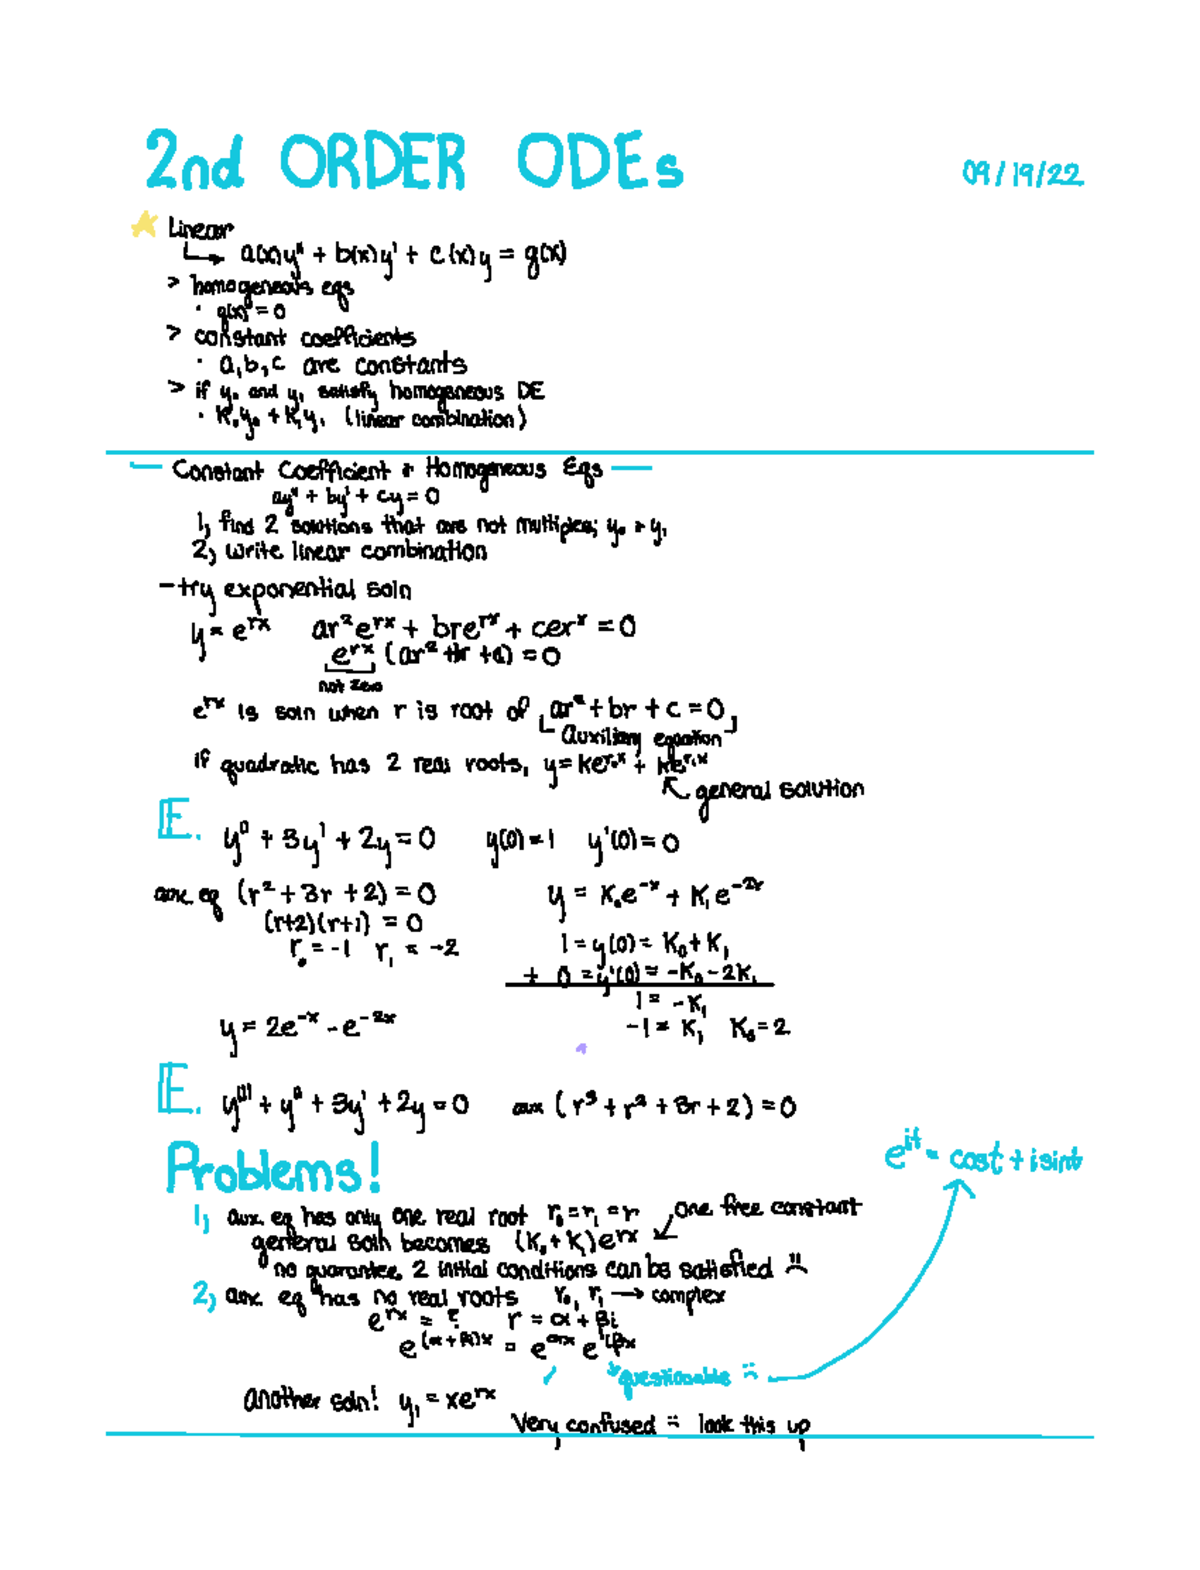 2nd ORDER ODEs 09/19/22
Linear
↳ a(x)y" + b(x)y' + c(x)y = g(x)
> homogeneous eqs
· g(x) = 0
> constant coefficients
· a,b,c are constants
> if y₀ and y₁ satisfy homogeneous DE
· K₀y₀ + K₁y₁ (linear combination)
— Constant Coefficient + Homogeneous Eqs —
ay" + by' + cy = 0
1) find 2 solutions that are not multiples; y₀ + y₁
2) write linear combination
- try exponential soln
y = e^rx ar²e^rx + bre^rx + cer^x = 0
e^rx (ar² + br + c) = 0
not zero
e^rx is soln when r is root of ar² + br + c = 0
auxiliary equation
if quadratic has 2 real roots, y = Ke^r₀x + Ke^r₁x
↖ general solution
E. y" + 3y' + 2y = 0 y(0) = 1 y'(0) = 0
aux. eq (r² + 3r + 2) = 0 y = K₀e^-x + K₁e^-2x
(r+2)(r+1) = 0
r₀ = -1 r₁ = -2 1 = y(0) = K₀ + K₁
+ 0 = y'(0) = -K₀ - 2K₁
1 = -K₁
y = 2e^-x - e^-2x -1 = K₁ K₀ = 2
E. y''' + y" + 3y' + 2y = 0 aux (r³ + r² + 3r + 2) = 0
e^it = cost + isint
Problems!
1) aux. eq has only one real root r₀ = r₁ = r one free constant
general soln becomes (K₀ + K₁)e^rx ↙
no guarantee 2 initial conditions can be satisfied ☹
2) aux. eq has no real roots r₀, r₁ → complex
e^rx = ? r = α + βi
e^(α + βi)x = e^αx e^iβx
questionable
another soln! y₁ = xe^rx
Very confused look this up